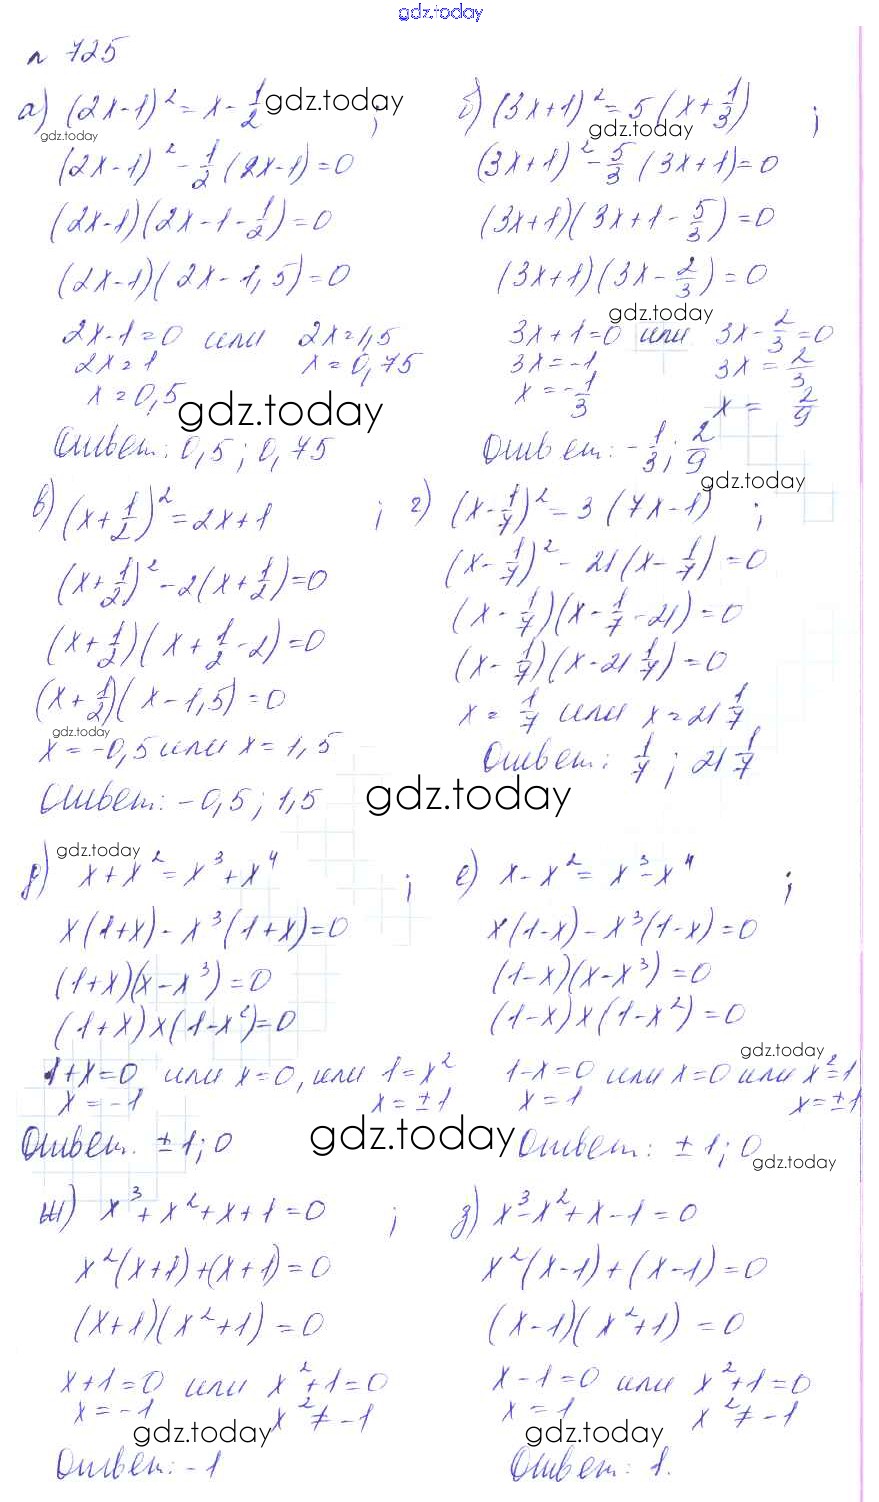 gdz.today
n 725
а) (2x-1)² = x - 1/2 gdz.today ;
gdz.today
(2x-1)² - 1/2 (2x-1) = 0
(2x-1)(2x-1-1/2) = 0
(2x-1)(2x-1,5) = 0
2x-1=0 или 2x=1,5
2x=1 x=0,75
x=0,5
gdz.today
Ответ: 0,5; 0,75
б) (3x+1)² = 5 (x+1/3) ;
gdz.today
(3x+1)² - 5/3 (3x+1) = 0
(3x+1)(3x+1-5/3) = 0
(3x+1)(3x-2/3) = 0
gdz.today
3x+1=0 или 3x-2/3=0
3x=-1 3x=2/3
x=-1/3 x=2/9
Ответ: -1/3; 2/9
gdz.today
в) (x+1/2)² = 2x+1 ;
(x+1/2)² - 2(x+1/2) = 0
(x+1/2)(x+1/2-2) = 0
(x+1/2)(x-1,5) = 0
gdz.today
x=-0,5 или x=1,5
Ответ: -0,5; 1,5
г) (x-1/7)² = 3 (7x-1) ;
(x-1/7)² - 21(x-1/7) = 0
(x-1/7)(x-1/7-21) = 0
(x-1/7)(x-21 1/7) = 0
x=1/7 или x=21 1/7
Ответ: 1/7; 21 1/7
gdz.today
gdz.today
д) x+x² = x³+x⁴ ;
x(1+x) - x³(1+x) = 0
(1+x)(x-x³) = 0
(1+x)x(1-x²) = 0
1+x=0 или x=0, или 1=x²
x=-1 x=±1
Ответ. ±1; 0
gdz.today
е) x-x² = x³-x⁴ ;
x(1-x) - x³(1-x) = 0
(1-x)(x-x³) = 0
(1-x)x(1-x²) = 0
gdz.today
1-x=0 или x=0 или x²=1
x=1 x=±1
Ответ: ±1; 0
gdz.today
ж) x³+x²+x+1=0 ;
x²(x+1)+(x+1)=0
(x+1)(x²+1)=0
x+1=0 или x²+1=0
x=-1 x²≠-1
gdz.today
Ответ: -1
з) x³-x²+x-1=0
x²(x-1)+(x-1)=0
(x-1)(x²+1)=0
x-1=0 или x²+1=0
x=1 x²≠-1
gdz.today
Ответ: 1.